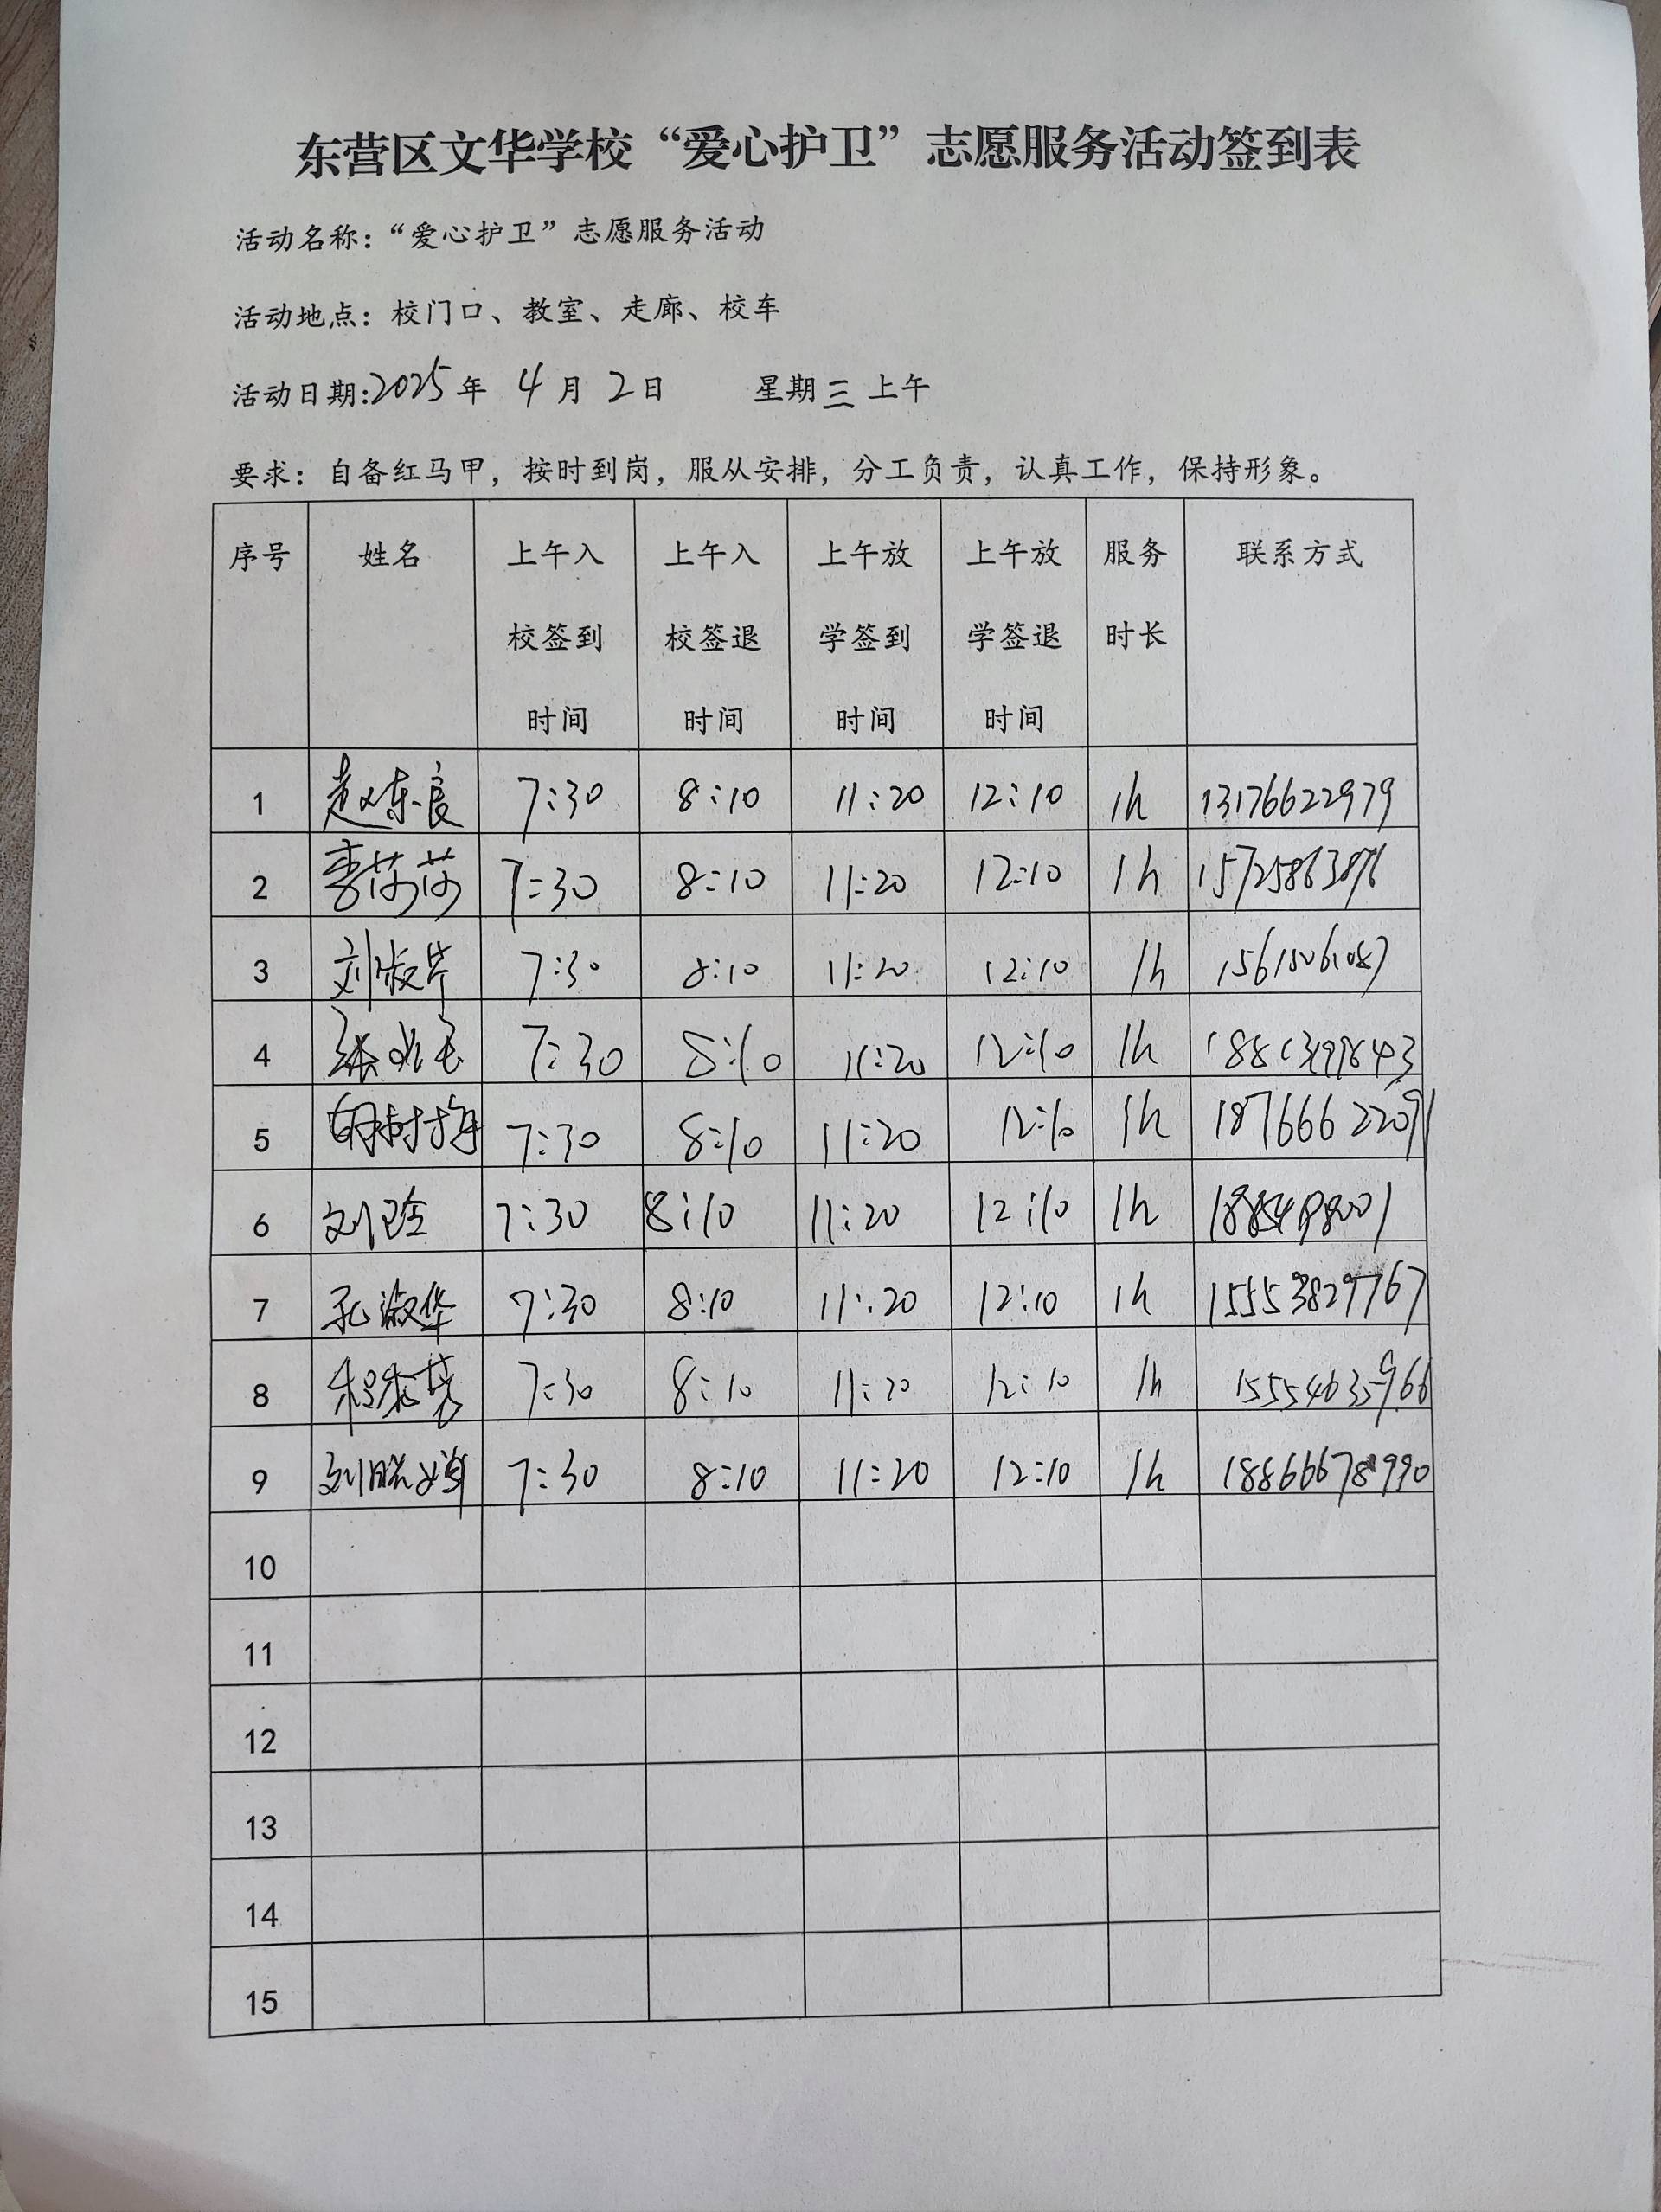 东营区文华学校“爱心护卫”志愿服务活动签到表
活动名称：“爱心护卫”志愿服务活动
活动地点：校门口、教室、走廊、校车
活动日期:2025年 4月 2日 星期三 上午
要求：自备红马甲，按时到岗，服从安排，分工负责，认真工作，保持形象。
序号 姓名 上午入校签到时间 上午入校签退时间 上午放学签到时间 上午放学签退时间 服务时长 联系方式
1 赵东良 7:30 8:10 11:20 12:10 1h 13176622979
2 李莎莎 7:30 8:10 11:20 12:10 1h 15725863876
3 刘淑芹 7:30 8:10 11:20 12:10 1h
4 7:30 8:10 11:20 12:10 1h
5 胡树梅 7:30 8:10 11:20 12:10 1h 18766622091
6 刘玲 7:30 8:10 11:20 12:10 1h
7 孔淑华 7:30 8:10 11:20 12:10 1h 15553829767
8 7:30 8:10 11:20 12:10 1h 15554635966
9 刘晓婷 7:30 8:10 11:20 12:10 1h 18866678990
10
11
12
13
14
15